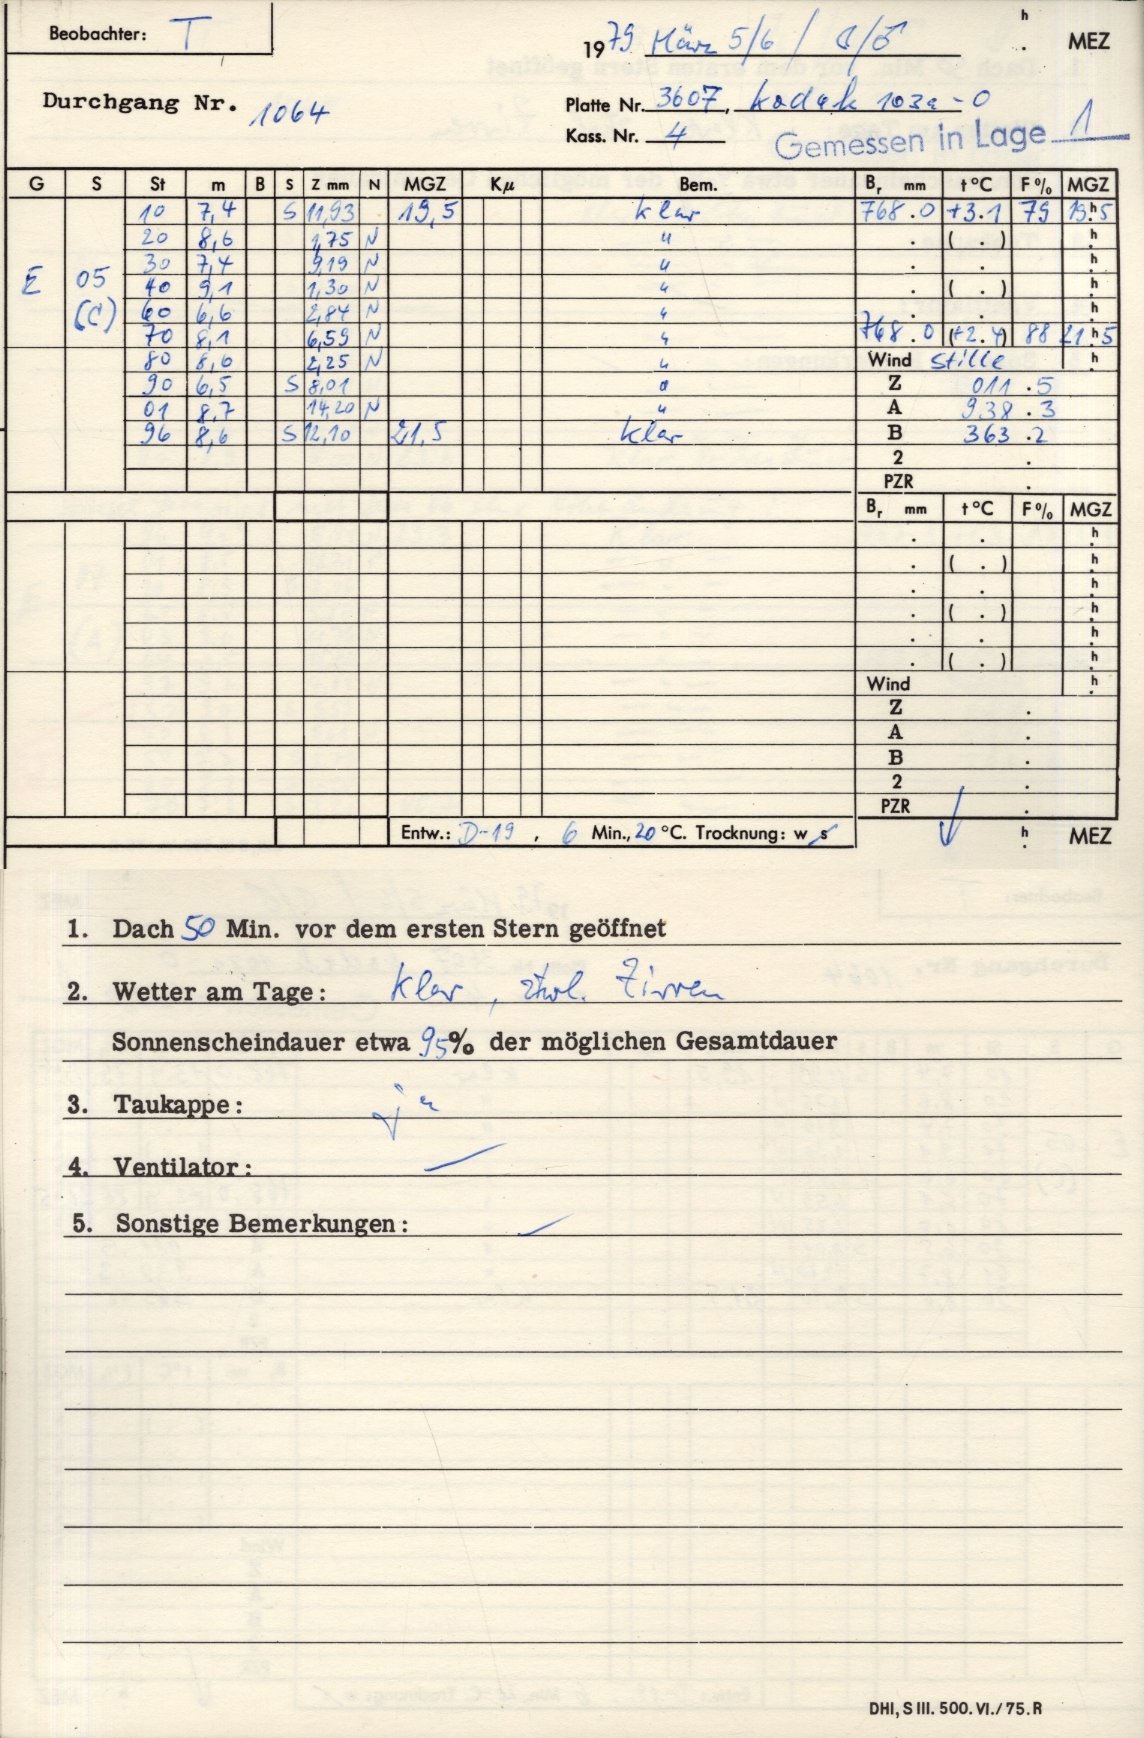 Beobachter: T
1979 März 5/6 / ☾/♂ h . MEZ
Durchgang Nr. 1064
Platte Nr. 3607, Kodak 103a-O
Kass. Nr. 4
Gemessen in Lage 1
G S St m B S Z mm N MGZ Kμ Bem. Br mm t °C F % MGZ
10 7,4 S 11,93 19,5 klar 768.0 +3.1 79 19h5
20 8,6 1,75 N " . ( . ) h
30 7,4 9,19 N " . . h
E 05 (C) 40 9,1 1,30 N " . ( . ) h
60 6,6 2,84 N " . . h
70 8,1 6,59 N " 768.0 (+2.4) 88 21h5
80 8,6 2,25 N " Wind Stille h
90 6,5 S 8,01 " Z 011.5
01 8,7 14,20 N " A 938.3
96 8,6 S 12,10 21,5 klar B 363.2
2 .
PZR .
Br mm t °C F % MGZ
. . h
. ( . ) h
. . h
. ( . ) h
. . h
. ( . ) h
Wind h
Z .
A .
B .
2 .
PZR .
Entw.: D-19, 6 Min., 20 °C. Trocknung: w s h . MEZ
1. Dach 50 Min. vor dem ersten Stern geöffnet
2. Wetter am Tage: klar, ztwl. Zirren
Sonnenscheindauer etwa 95% der möglichen Gesamtdauer
3. Taukappe: ja
4. Ventilator: —
5. Sonstige Bemerkungen: —
DHI, S III. 500. VI./75. R